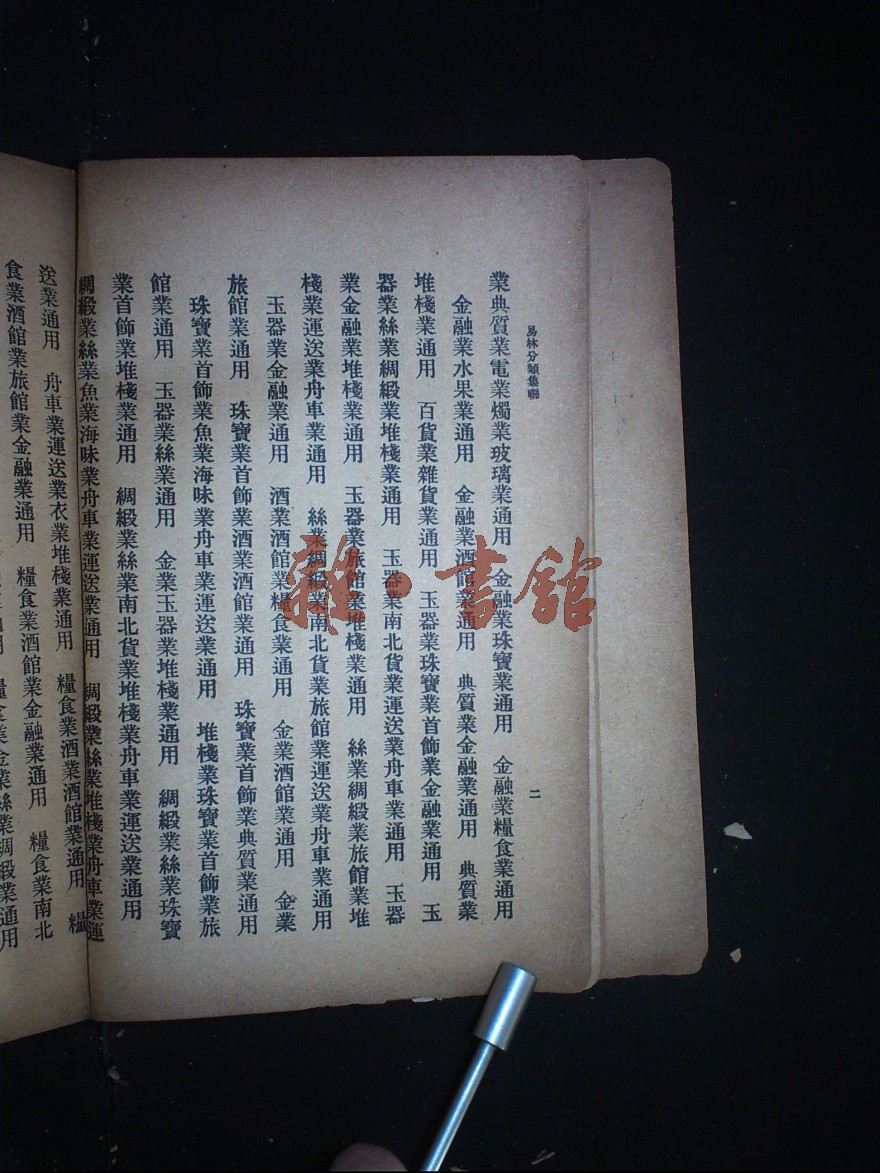 易林分類集聯
二
業典質業電業燭業玻璃業通用　金融業珠寶業通用　金融業糧食業通用
金融業水果業通用　金融業酒館業通用　典質業金融業通用　典質業
堆棧業通用　百貨業雜貨業通用　玉器業珠寶業首飾業金融業通用　玉
器業絲業綢緞業堆棧業通用　玉器業南北貨業運送業舟車業通用　玉器
業金融業堆棧業通用　玉器業旅館業堆棧業通用　絲業綢緞業旅館業堆
棧業運送業舟車業通用　絲業綢緞業南北貨業旅館業運送業舟車業通用
玉器業金融業通用　酒業酒館業糧食業通用　金業酒館業通用　金業
旅館業通用　珠寶業首飾業酒業酒館業通用　珠寶業首飾業典質業通用
珠寶業首飾業魚業海味業舟車業運送業通用　堆棧業珠寶業首飾業旅
館業通用　玉器業絲業通用　金業玉器業堆棧業通用　綢緞業絲業珠寶
業首飾業堆棧業通用　綢緞業絲業南北貨業堆棧業舟車業運送業通用
綢緞業絲業魚業海味業舟車業運送業通用　綢緞業絲業堆棧業舟車業運
送業通用　舟車業運送業衣業堆棧業通用　糧食業酒業酒館業通用　糧
食業酒館業旅館業金融業通用　糧食業酒館業金融業通用　糧食業南北
糧食業金業絲業綢緞業通用
雜·書館